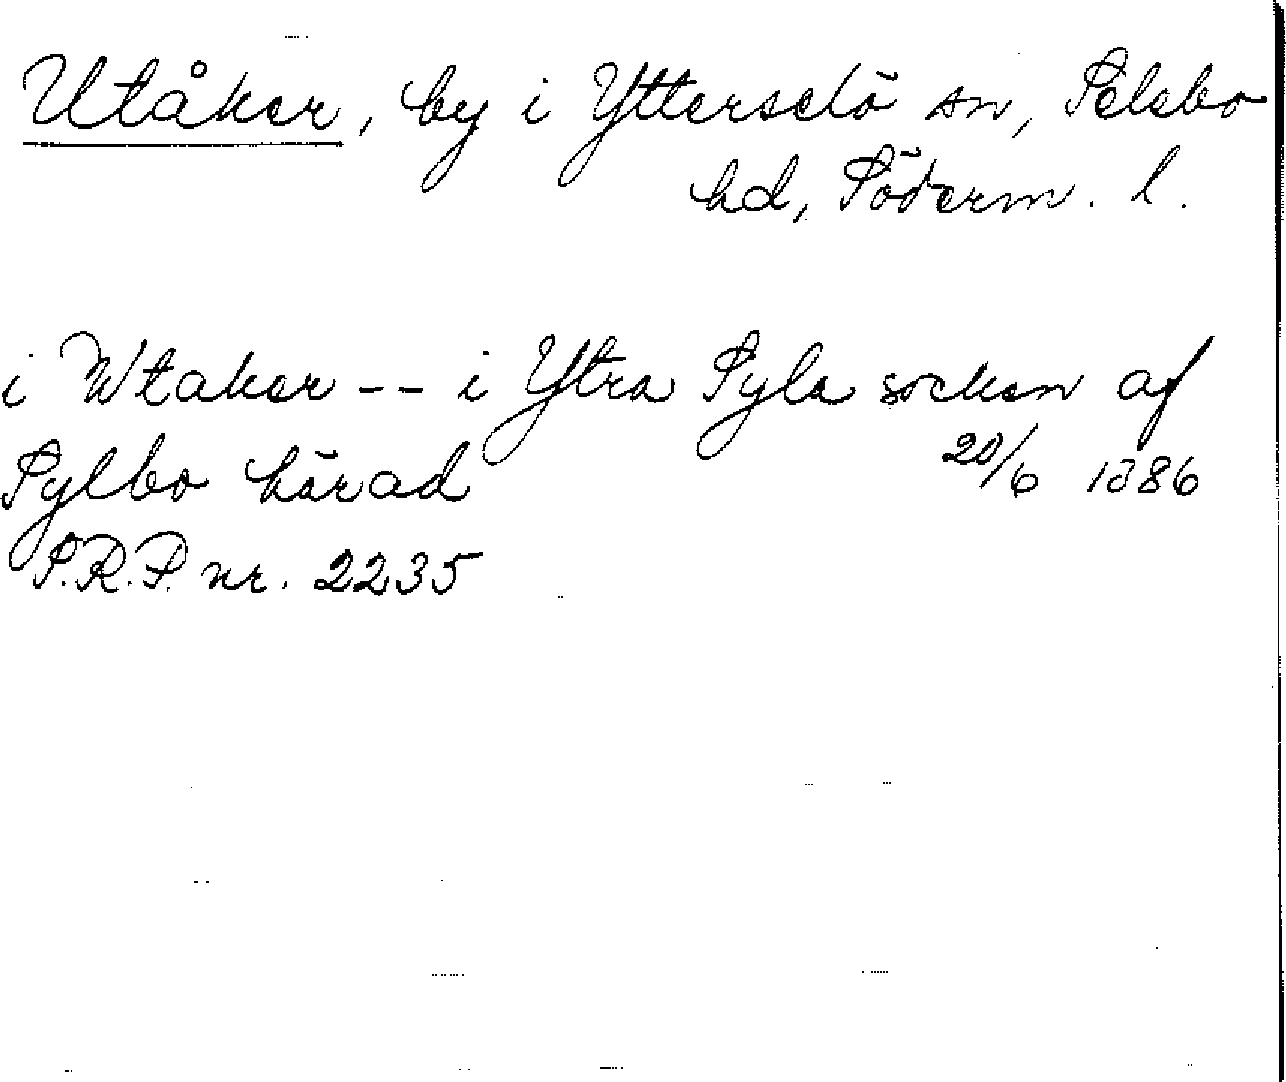 Utåker, by i Ytterselö sn, Selebo
hd, Söderm. l.
i Wtaker -- i Ytra Syla socken af
Sylbo härad 20/6 1386
S.R.P. nr. 2235